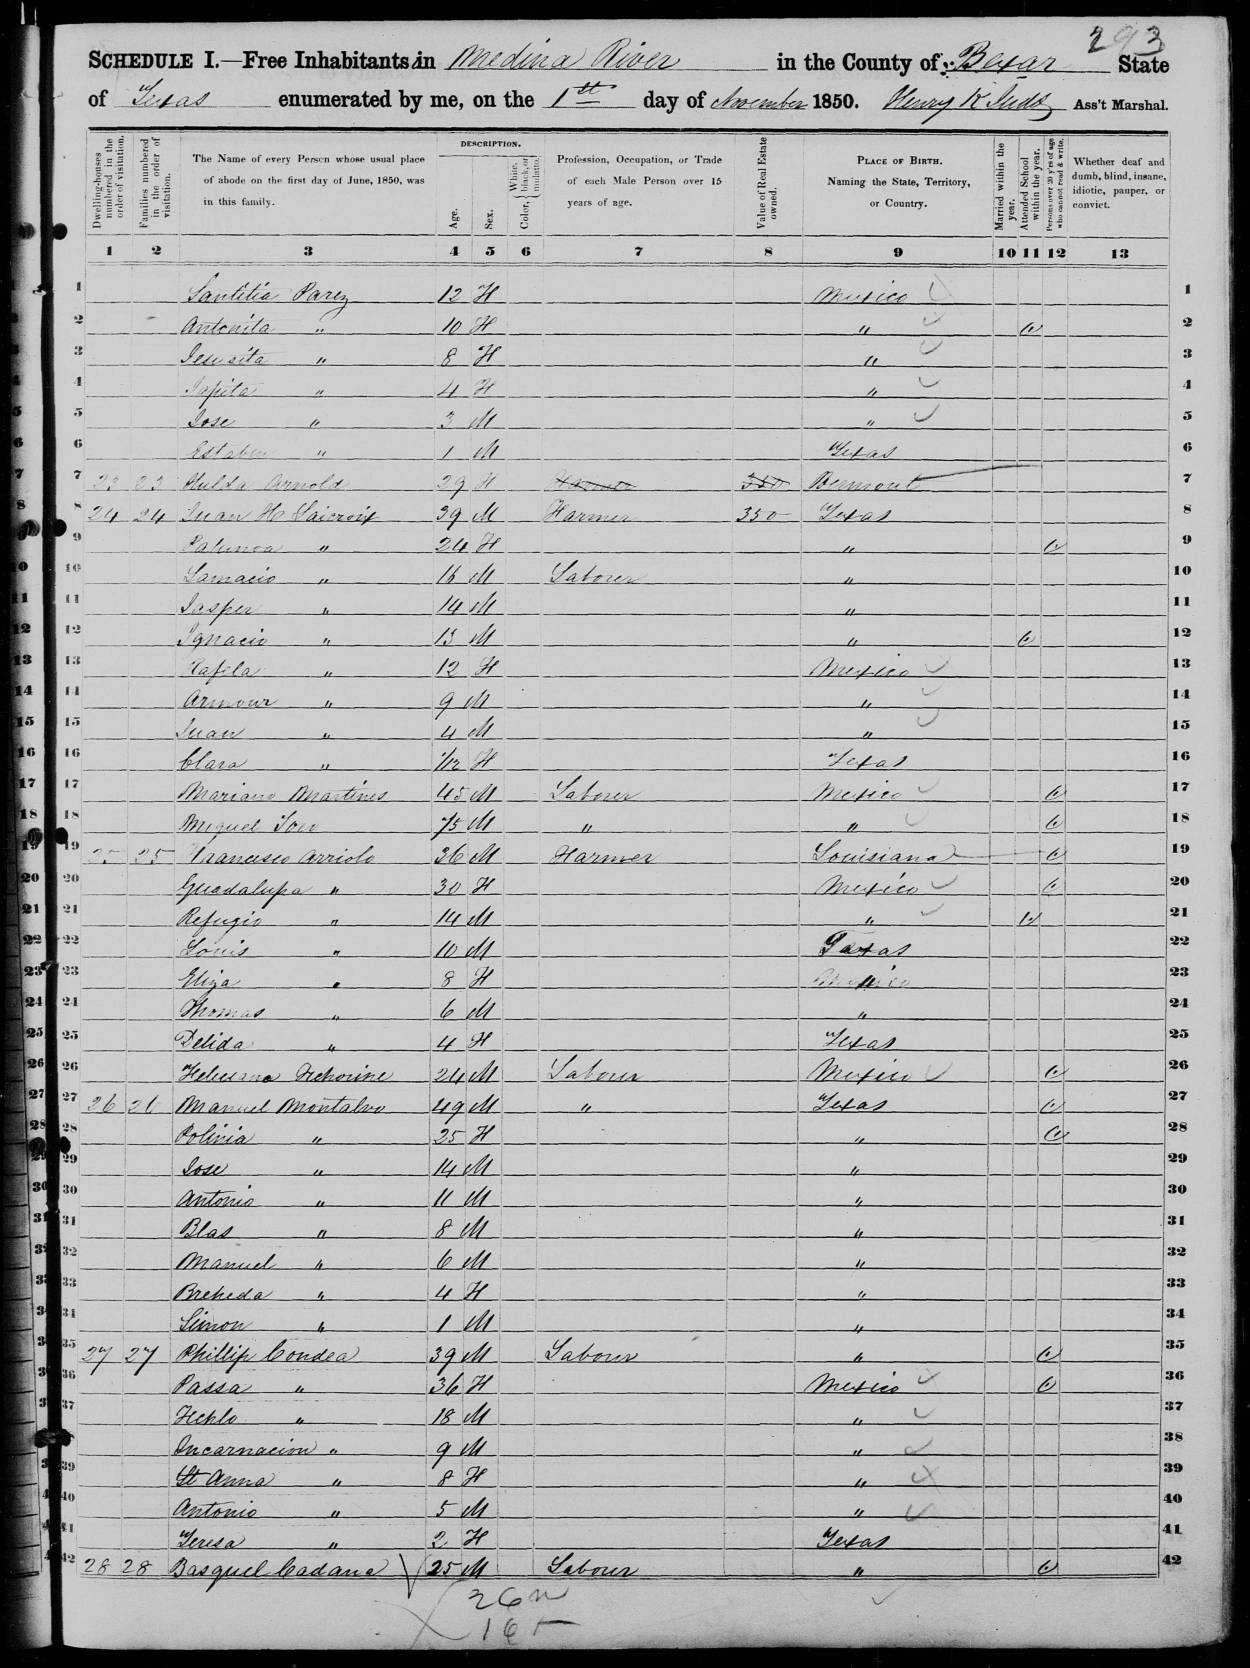 293
SCHEDULE I.—Free Inhabitants in Medina River in the County of Bexar State
of Texas enumerated by me, on the 1st day of November 1850. Henry K Ass't Marshal.
Dwelling-houses numbered in the order of visitation.
Families numbered in the order of visitation.
The Name of every Person whose usual place of abode on the first day of June, 1850, was in this family.
DESCRIPTION.
Age.
Sex.
Color, White, black, or mulatto.
Profession, Occupation, or Trade of each Male Person over 15 years of age.
Value of Real Estate owned.
PLACE OF BIRTH. Naming the State, Territory, or Country.
Married within the year.
Attended School within the year.
Persons over 20 y'rs of age who cannot read & write.
Whether deaf and dumb, blind, insane, idiotic, pauper, or convict.
1 2 3 4 5 6 7 8 9 10 11 12 13
1 Parez 12 H Mexico 1
2 Antonita " 10 H " 2
3 Jesusita " 8 H " 3
4 " 4 H " 4
5 Jose " 3 M " 5
6 " 1 M Texas 6
7 23 23 Hulda Arnold 29 H Farmer 350 Vermont 7
8 24 24 Juan H 39 M Farmer 350 Texas 8
9 " 24 H " 9
10 " 16 M Laborer " 10
11 Jasper " 14 M " 11
12 Ignacio " 13 M " 12
13 Rafela " 12 H Mexico 13
14 Armour " 9 M " 14
15 Juan " 4 M " 15
16 Clara " 1/12 H Texas 16
17 Mariano Martines 45 M Laborer Mexico 17
18 Miguel 75 M " " 18
19 25 25 Francisco Arriolo 36 M Farmer Louisiana 19
20 Guadalupa " 30 H Mexico 20
21 Refugio " 14 M " 21
22 Louis " 10 M Texas 22
23 Eliza " 8 H " 23
24 Thomas " 6 M " 24
25 Delida " 4 H Texas 25
26 24 M Laborer Mexico 26
27 26 26 Manuel Montalvo 49 M " Texas 27
28 Polinia " 25 H " 28
29 Jose " 14 M " 29
30 Antonio " 11 M " 30
31 Blas " 8 M " 31
32 Manuel " 6 M " 32
33 " 4 H " 33
34 Simon " 1 M " 34
35 27 27 Phillip Condea 39 M Laborer " 35
36 Passa " 36 H Mexico 36
37 " 18 M " 37
38 Incarnacion " 9 M " 38
39 St Anna " 8 H " 39
40 Antonio " 5 M " 40
41 Teresa " 2 H Texas 41
42 28 28 Basquel Cadana 25 M Laborer " 42
26